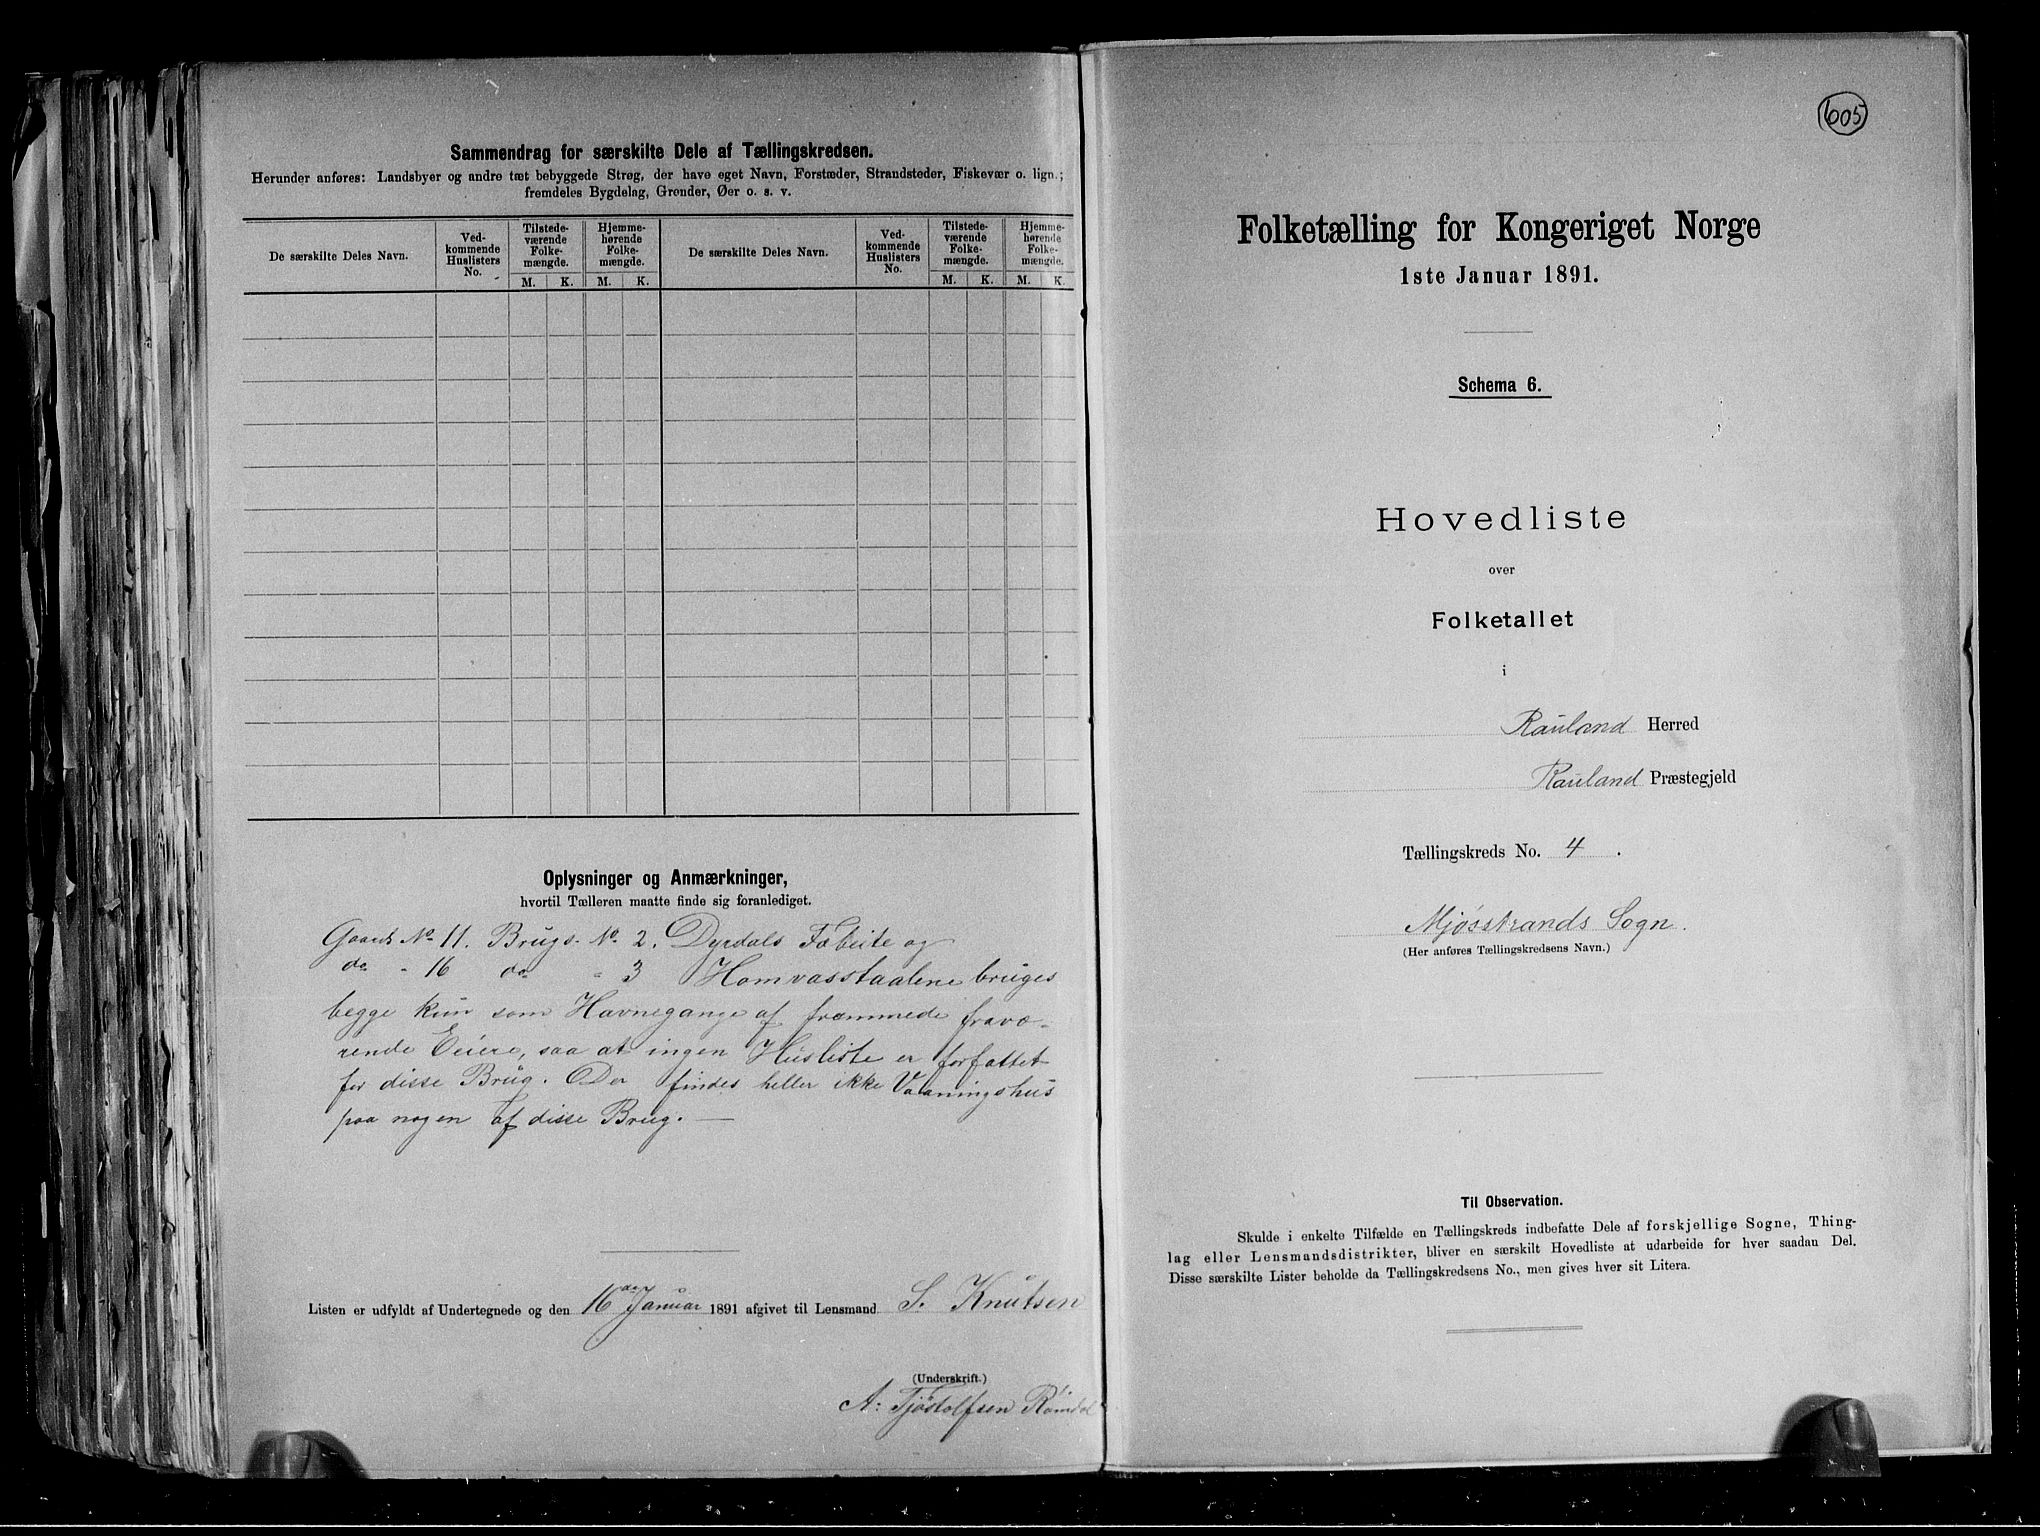 Sammendrag for særskilte Dele af Tællingskredsen.
Herunder anføres: Landsbyer og andre tæt bebyggede Strøg, der have eget Navn, Forstæder, Strandsteder, Fiskevær o. lign.;
fremdeles Bygdelag, Grender, Øer o. s. v.
De særskilte Deles Navn.
Ved-
kommende
Huslisters
No.
Tilstede-
værende
Folke-
mængde.
Hjemme-
hørende
Folke-
mængde.
De særskilte Deles Navn.
Ved-
kommende
Huslisters
No.
Tilstede-
værende
Folke-
mængde.
Hjemme-
hørende
Folke-
mængde.
M. K. M. K. M. K. M. K.
Oplysninger og Anmærkninger,
hvortil Tælleren maatte finde sig foranlediget.
Gaards No 11. Brugs- No 2. Dyrdals Fæbeite og
do " 16 do " 3 Homvasstaalene bruges
begge kun som Havnegange af fræmmede fravæ-
rende Eiere, saa at ingen Husliste er forfattet
for disse Brug. Der findes heller ikke Vaaningshus
paa nogen af disse Brug. —
Listen er udfyldt af Undertegnede og den 16de Januar 1891 afgivet til Lensmand S. Knutsen
(Underskrift.)
A: Tjøstolfsen
605
Folketælling for Kongeriget Norge
1ste Januar 1891.
Schema 6.
Hovedliste
over
Folketallet
i
Rauland Herred
Rauland Præstegjeld
Tællingskreds No. 4.
Mjøsstrands Sogn.
(Her anføres Tællingskredsens Navn.)
Til Observation.
Skulde i enkelte Tilfælde en Tællingskreds indbefatte Dele af forskjellige Sogne, Thing-
lag eller Lensmandsdistrikter, bliver en særskilt Hovedliste at udarbeide for hver saadan Del.
Disse særskilte Lister beholde da Tællingskredsens No., men gives hver sit Litera.